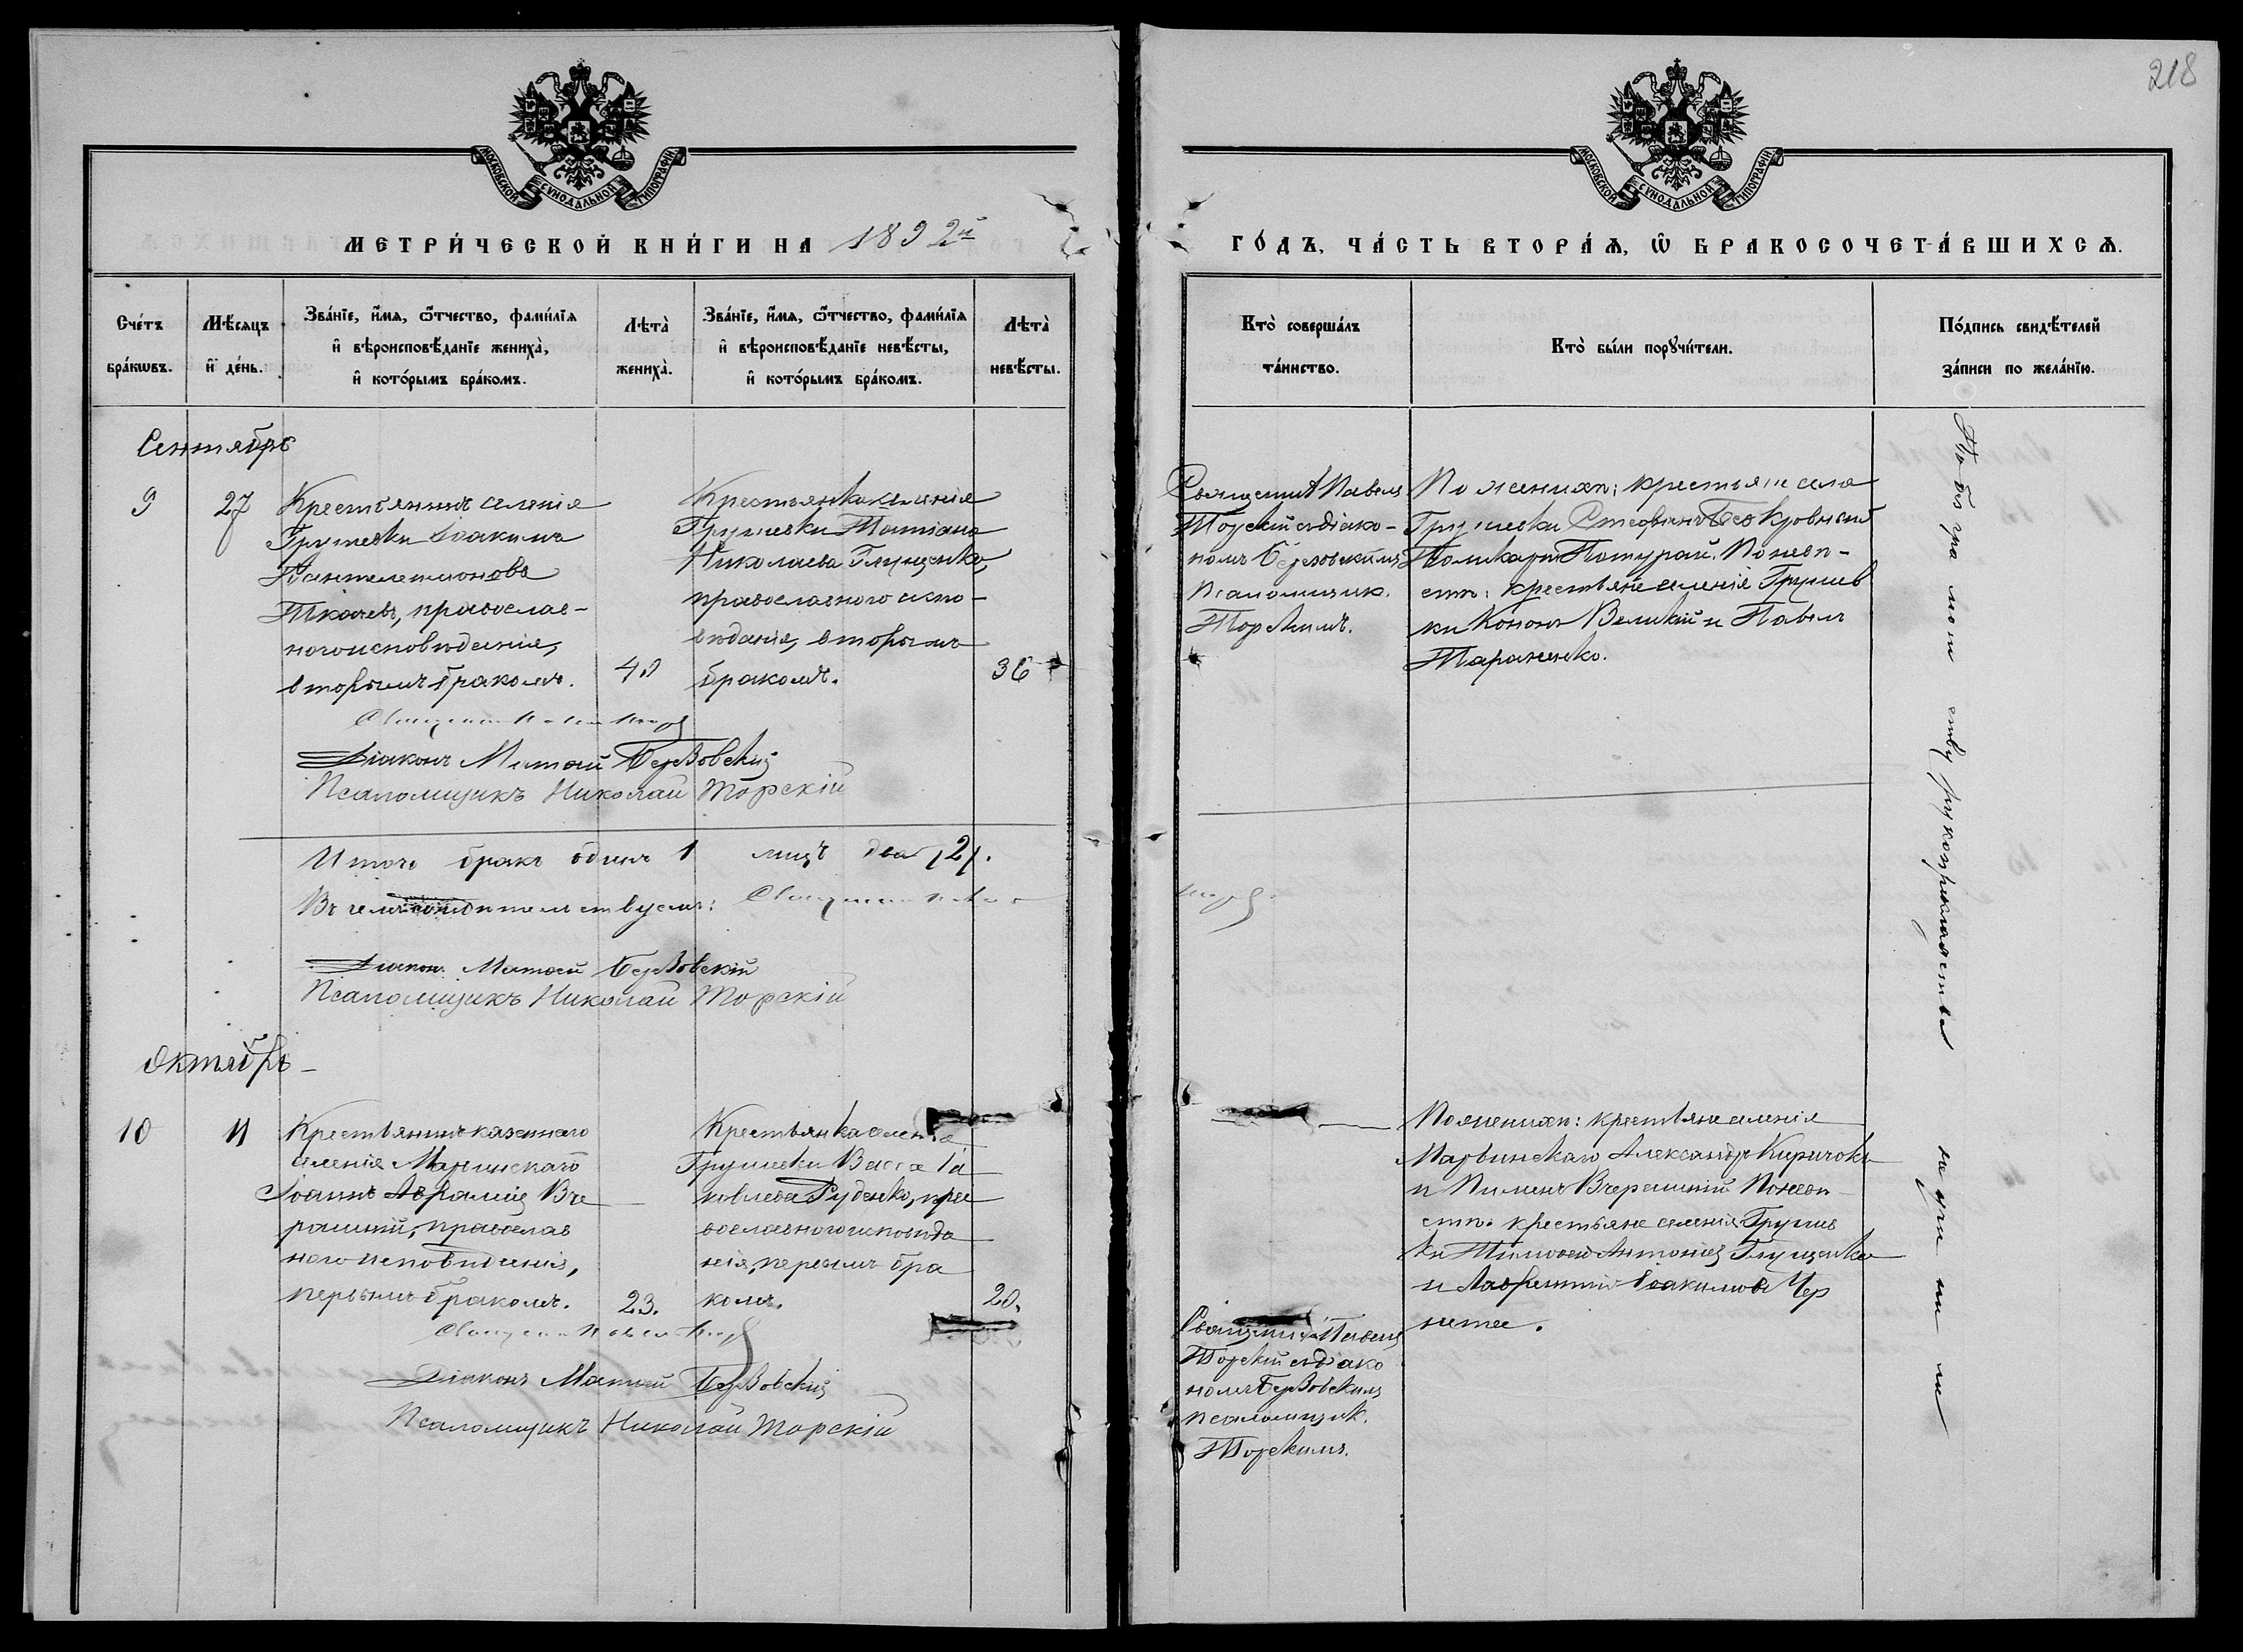 218
МОСКОВСКОЙ СѴНОДАЛЬНОЙ ТИПОГРАФІИ
МОСКОВСКОЙ СѴНОДАЛЬНОЙ ТИПОГРАФІИ
МЕТРИ́ЧЕСКОЙ КНИ́ГИ НА 1892й
ГО́ДЪ, ЧА́СТЬ ВТОРА́Ѧ, Ѡ҆ БРАКОСОЧЕТА́ВШИХСѦ.
Сче́тъ бра́кѡвъ.
Мѣ́сѧцъ и҆ де́нь.
Зва́нїе, и҆́мѧ, ѻ҆́тчество, фами́лїѧ
и҆ вѣроисповѣ́данїе жениха̀,
и҆ кото́рымъ бра́комъ.
Лѣта̀ жениха̀.
Зва́нїе, и҆́мѧ, ѻ҆́тчество, фами́лїѧ
и҆ вѣроисповѣ́данїе невѣ́сты,
и҆ кото́рымъ бра́комъ.
Лѣта̀ невѣ́сты.
Кто̀ соверша́лъ
та́инство.
Кто̀ бы́ли порꙋчи́тели.
По́дпись свидѣ́телей
за́писи по жела́нїю.
Сентябрь
9
27
Крестьянинъ селенія
Грушевки Іоакимъ
Пантелеимоновъ
Ткачевъ, православ-
ного исповѣданія,
вторымъ бракомъ.
40
Крестьянка селенія
Грушевки Татіана
Николаева Глущенко,
православного испо-
вѣданія, вторымъ
бракомъ.
36
Священникъ Павелъ
Торскій съ діако-
номъ Березовскимъ
Псаломщик.
Торскимъ.
По женихѣ: крестьяне села
Грушевки Стефанъ Безкровный
Поликарпъ Потурай. По невѣ-
стѣ: крестьяне селенія Грушев
ки Кононъ Великій и Павелъ
Тараненко.
Діаконъ Матѳей Березовскій
Псаломщикъ Николай Торскій
Итого бракъ одинъ 1 лицъ два /2/.
Въ чемъ свидѣтельствуемъ:
Діакон. Матѳей Березовскій
Псаломщикъ Николай Торскій
Октябрь
10
11
Крестьянинъ казеннаго
селенія Марьинскаго
Іоаннъ Аврамій Вче
рашній, православ
ного исповѣданія,
первымъ бракомъ.
23.
Крестьянка селенія
Грушевки Васса Іа
ковлева Руденко, пра
вославного исповѣда
нія, первымъ бра
комъ.
20.
Священникъ Павелъ
Торскій съ діако
номъ Березовскимъ
псаломщик.
Торскимъ.
По женихѣ: крестьяне селенія
Марьинскаго Александръ Киричокъ
и Пименъ Вчерашній По невѣ
стѣ: крестьяне селенія Грушев
ки Тимоѳей Антоніевъ Глущенко
и Лаврентій Іоакимовъ Чер
Діаконъ Матѳей Березовскій
Псаломщикъ Николай Торскій